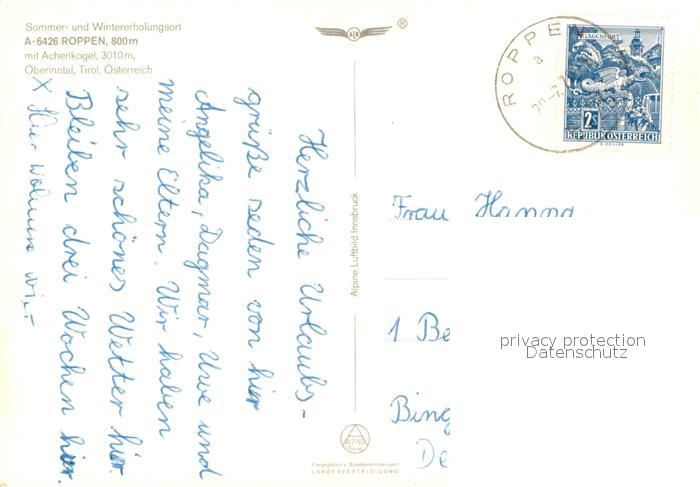 Sommer- und Wintererholungsort
A-6426 ROPPEN, 800m
mit Achenkogel, 3010m,
Oberinntal, Tirol, Österreich
Herzliche Urlaubs-
grüße seden von hier
Angelika, Dagmar, Uwe und
meine Eltern. Wir haben
sehr schönes Wetter hier.
Bleiben drei Wochen hier.
X Hier wohnen wir
Alpine Luftbild Innsbruck
®
ROPPEN
a
KLAGENFURT
2S
REPUBLIK ÖSTERREICH
Frau Hanna
1 Be
Bing
De
privacy protection
Datenschutz
Freigegeben v. Bundesministerium f.
LANDESVERTEIDIGUNG